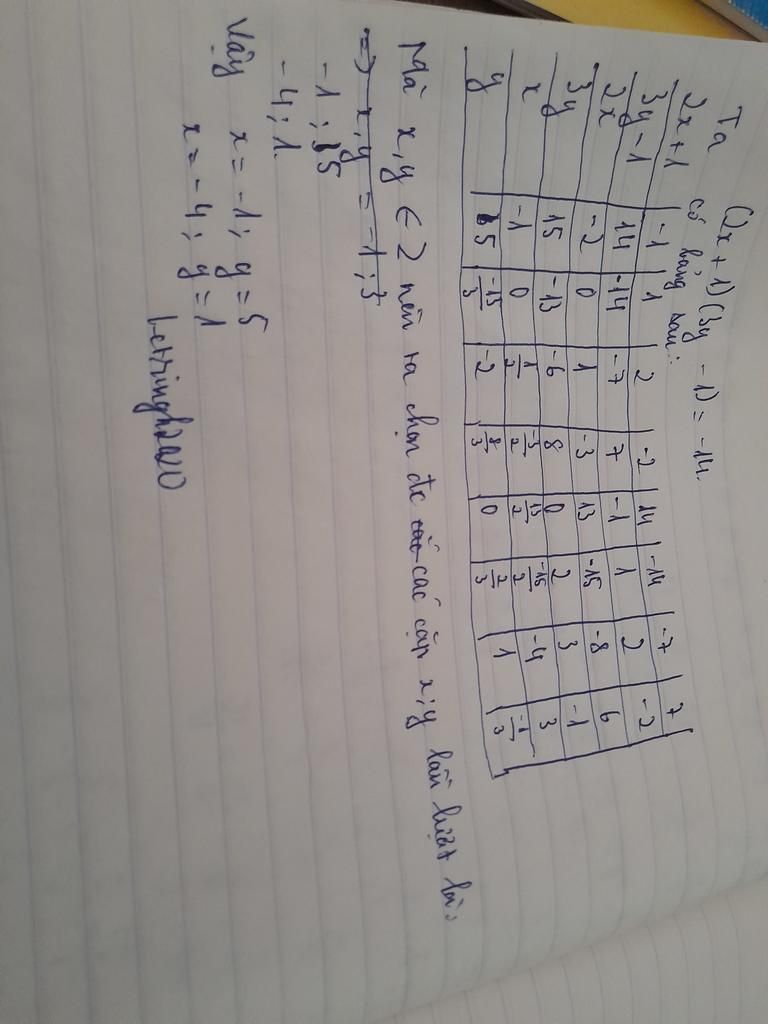 (2x + 1)(3y - 1) = -14.
Ta có bảng sau:
2x+1 -1 1 2 -2 14 -14 -7 7
3y-1 14 -14 -7 7 -1 1 2 -2
2x -2 0 1 -3 13 -15 -8 6
3y 15 -13 -6 8 0 2 3 -1
x -1 0 1/2 -3/2 13/2 -15/2 -4 3
y 5 -13/3 -2 8/3 0 2/3 1 -1/3
Mà x,y ∈ Z nên ta chọn đc các cặp x;y lần lượt là:
=> x,y = -1;3
-1;5
-4;1.
Vậy x = -1; y = 5
x = -4; y = 1